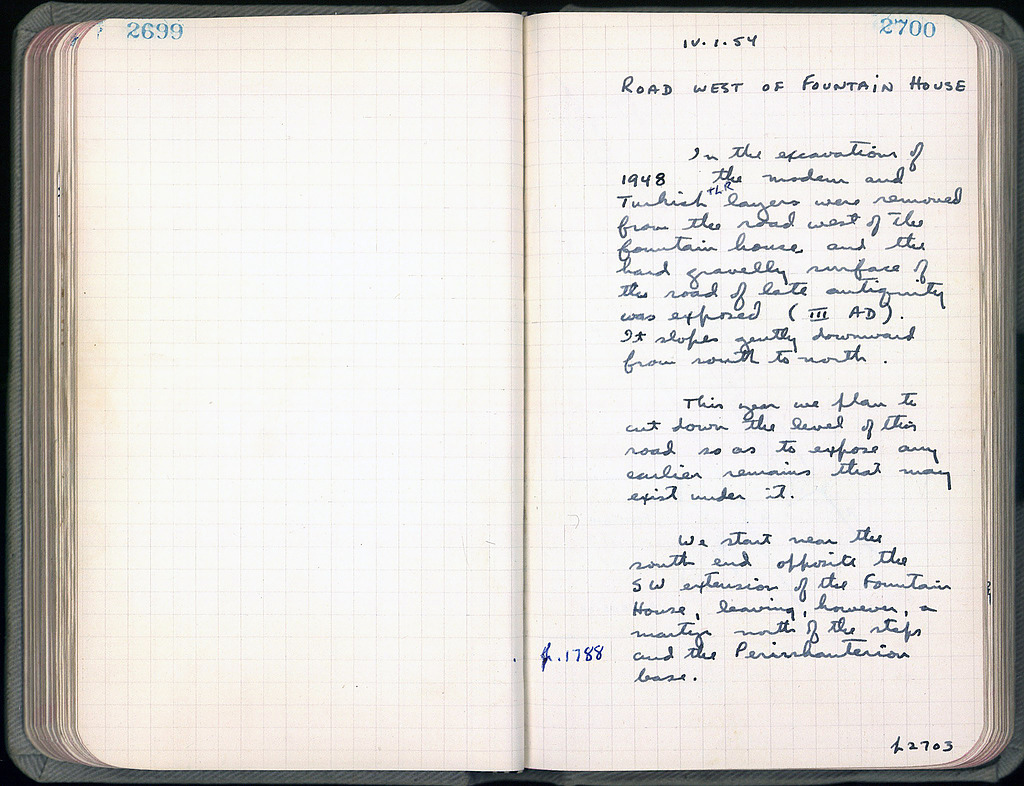 2699
2700
IV.1.54
ROAD WEST OF FOUNTAIN HOUSE
In the excavations of
1948 the modern and
Turkish + LR layers were removed
from the road west of the
fountain house and the
hard gravelly surface of
the road of late antiquity
was exposed (III AD).
It slopes gently downward
from south to north.
This year we plan to
cut down the level of this
road so as to expose any
earlier remains that may
exist under it.
We start near the
south end opposite the
SW extension of the Fountain
House, leaving, however, a
martyr north of the steps
p.1788 and the Perirrhanterion
base.
p2703